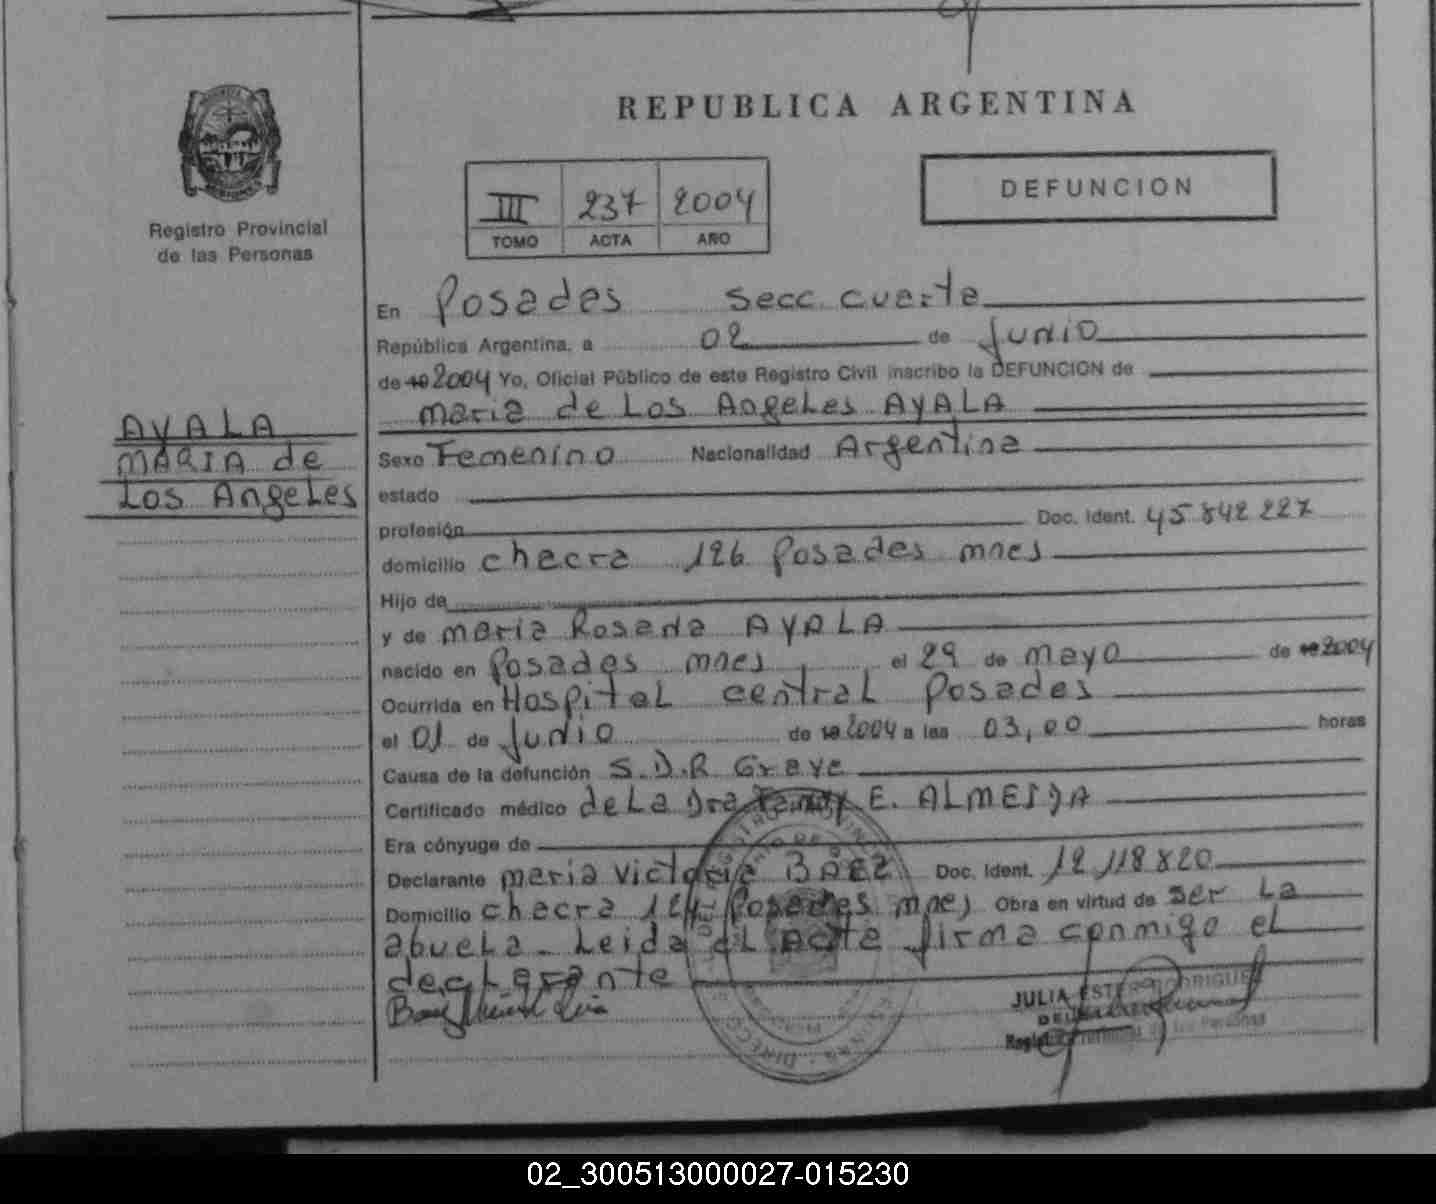 REPUBLICA ARGENTINA
Registro Provincial
de las Personas
III 237 2004
TOMO ACTA AÑO
DEFUNCION
En Posadas secc. cuarta
República Argentina, a 02 de Junio
de 19 2004 Yo, Oficial Público de este Registro Civil inscribo la DEFUNCION de
maria de Los Angeles AYALA
AYALA
MARIA de
Los Angeles
Sexo Femenino Nacionalidad Argentina
estado
profesión Doc. Ident. 45 842 227
domicilio chacra 126 Posadas mnes
Hijo de
y de maria Rosana AYALA
nacido en Posadas mnes el 29 de mayo de 19 2004
Ocurrida en Hospital central Posadas
el 01 de Junio de 19 2004 a las 03,00 horas
Causa de la defunción S.D.R Grave
Certificado médico de La Dra E. ALMEIDA
Era cónyuge de
Declarante maria victoria BAEZ Doc. Ident. 12 118 820
Domicilio chacra Posadas mnes Obra en virtud de ser La
abuela - Leida el Acta firma conmigo el
declarante
JULIA ESTER RODRIGUE
02_300513000027-015230